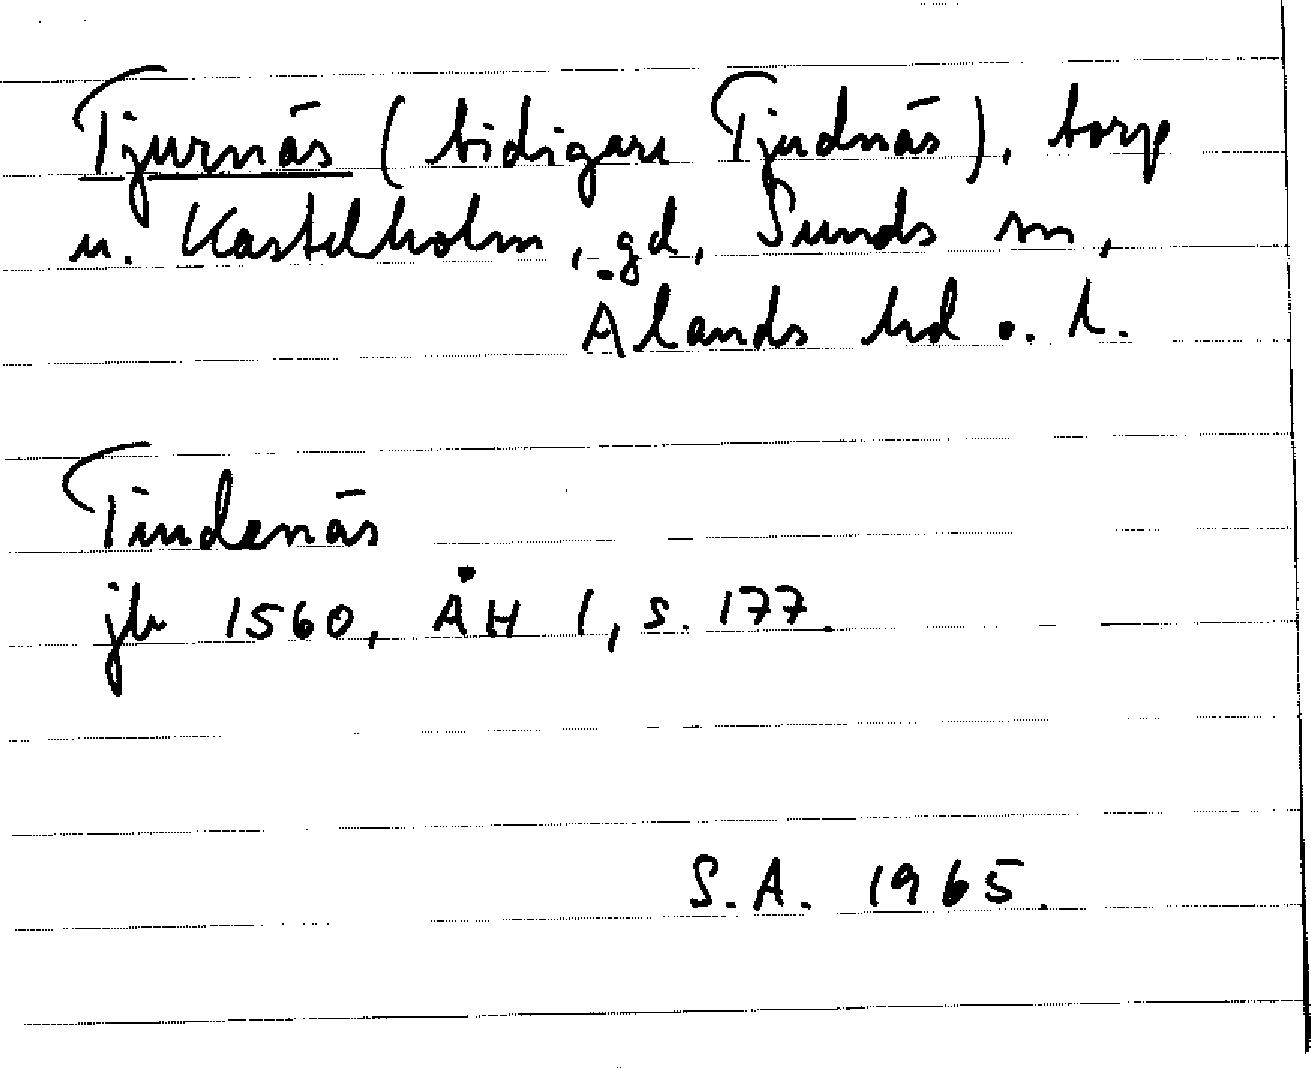 Tjurnäs (tidigare Tjudnäs), torp
u. Kastelholm, gd, Sunds sn,
Ålands hd o. l.
Tiudenäs
jb 1560, ÅH 1, s. 177.
S.A. 1965.